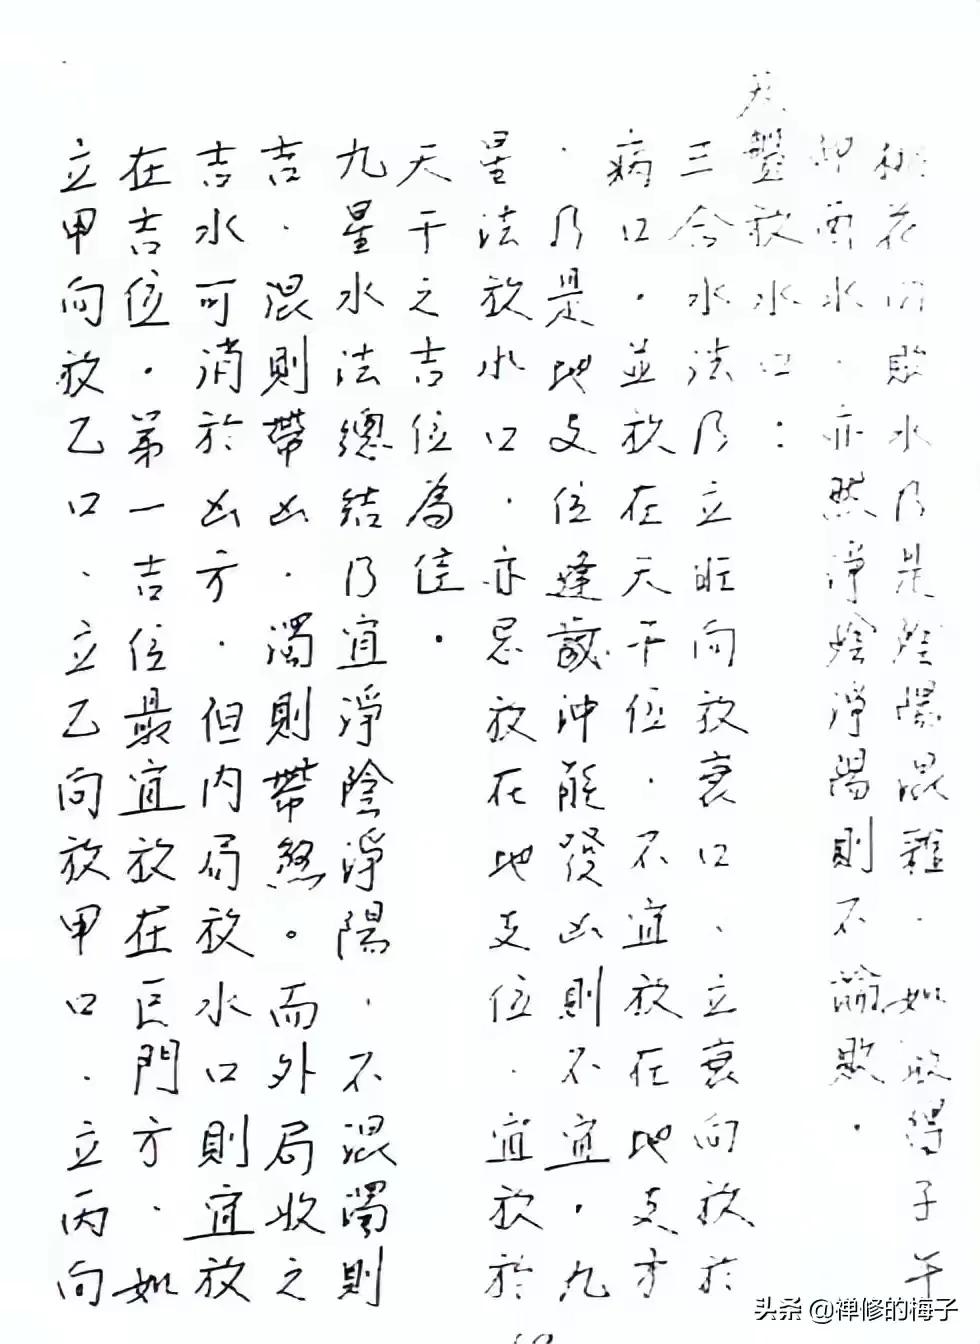 桃花四敗水乃是陰陽混雜．如收得子午
卯酉水．亦然淨陰淨陽則不論敗．
天盤放水口：
三合水法乃立旺向放衰口、立衰向放於
病口．並放在天干位．不宜放在地支才
．乃是地支位逢歲沖能發凶則不宜．九
星法放水口．亦忌放在地支位．宜放於
天干之吉位為佳．
九星水法總結乃宜淨陰淨陽．不混濁則
吉．混則帶凶．濁則帶煞。而外局收之
吉水可消於凶方．但內局放水口則宜放
在吉位．第一吉位最宜放在巨門方．如
立甲向放乙口、立乙向放甲口．立丙向
头条 @禅修的梅子